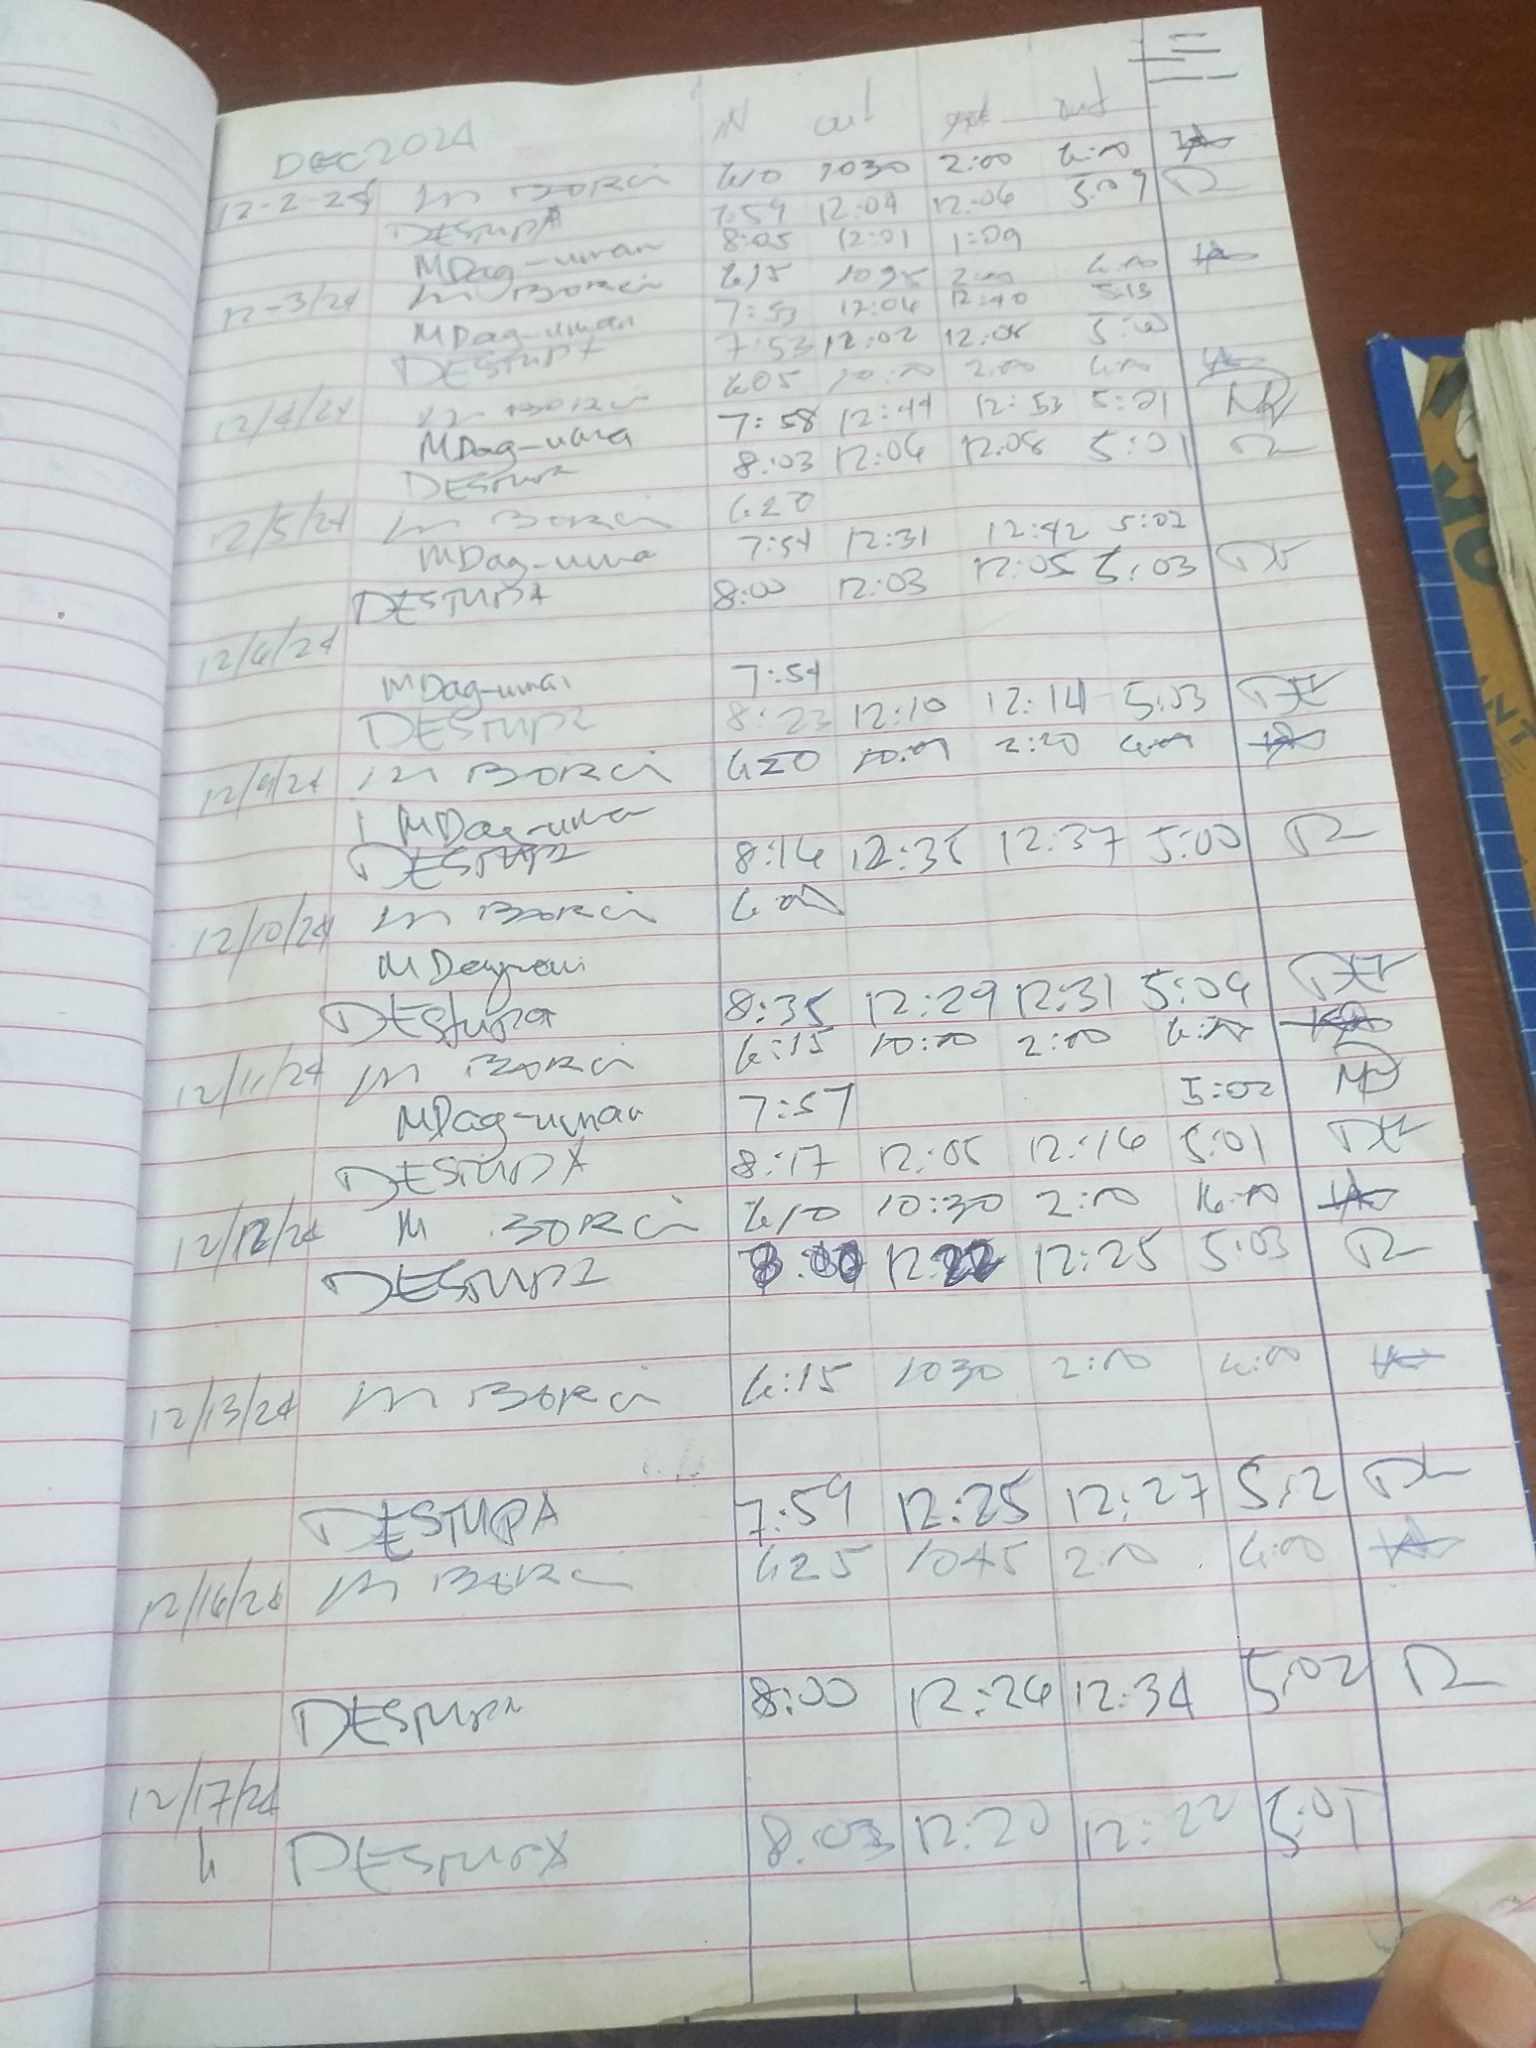 DEC 2024 IN out out
12-2-24 M BORCI 610 1030 2:00 4:00
DESTUPA 7:59 12:04 12:06 5:09
MDag-uman 8:05 12:01 1:09
12-3/24 M BORCI 615 1045 2:00 4:00
MDag-uman 7:53 12:04 12:40 5:13
DESTUPA 7:53 12:02 12:05
12/4/24 M BORCI 605 10:00 2:00 4:00
MDag-uma 7:58 12:44 12:53 5:01 MD
DESTUPA 8:03 12:06 12:08 5:01
12/5/24 M BORCI 620
MDag-uma 7:54 12:31 12:42 5:02
DESTUPA 8:00 12:03 12:05 5:03
12/6/24
MDag-uman 7:54
DESTUPA 8:23 12:10 12:14 5:03
12/9/24 M BORCI 620 10:00 2:20 4:00
MDag-uman
DESTUPA 8:16 12:35 12:37 5:00
12/10/24 M BORCI 6:00
DESTUPA 8:35 12:29 12:31 5:09
12/11/24 M BORCI 6:15 10:00 2:00 4:00
MDag-uman 7:57 5:02 MD
DESTUPA 8:17 12:05 12:16 5:01
12/12/24 M BORCI 610 10:30 2:00
DESTUPA 12:22 12:25 5:03
12/13/24 M BORCI 6:15 1030 2:00 4:00
DESTUPA 7:59 12:25 12:27 5:12
12/16/24 M BORCI 625 1045 2:00 4:00
DESTUPA 8:00 12:26 12:34 5:02
12/17/24
DESTUPA 8:03 12:20 12:22 5:01